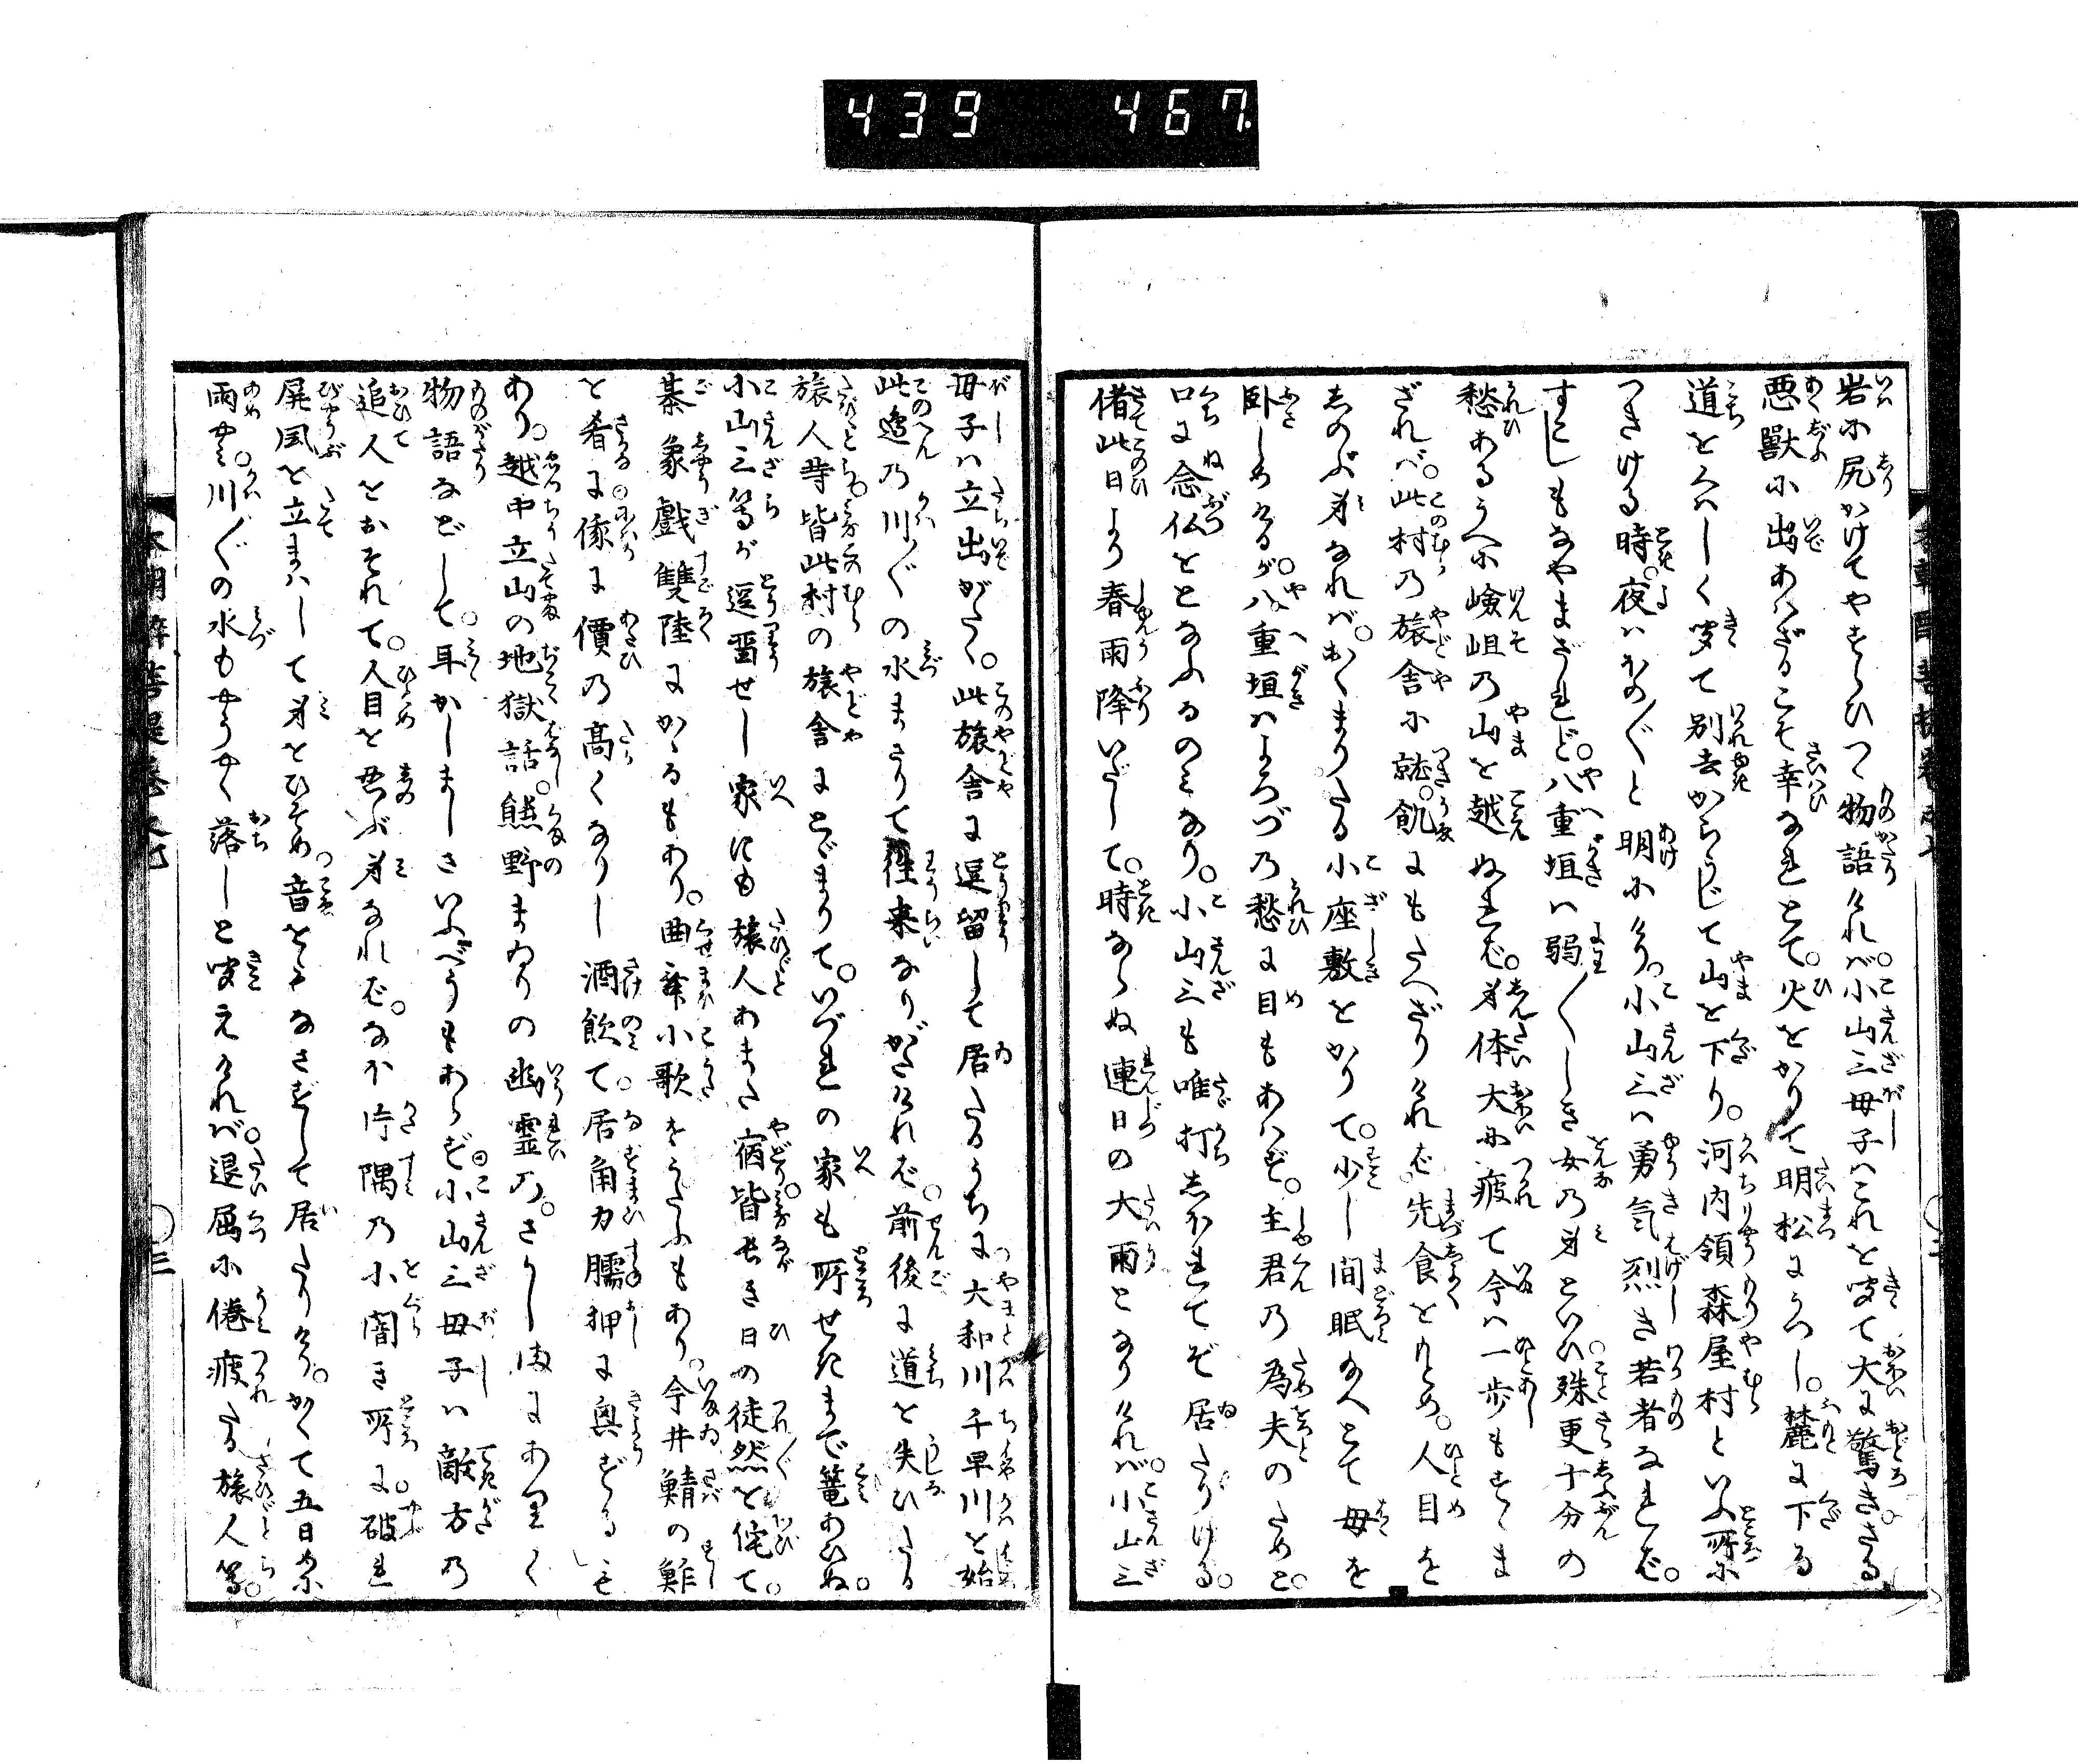 439 467.
岩に尻かけてやすらひつゝ物語ければ。小山三母子はこれを聞て大に驚き。さる
悪獣に出あはざるこそ幸なれとて。火をかりて明松にうつし。麓に下る
道をくはしく聞て別去からうじて山を下り。河内領森屋村といふ所に
つきける時。夜はほの〴〵と明にけり。小山三は勇気烈き若者なれば。
すこしもなやまざれど。八重垣は弱〳〵しき女の身といひ。殊更十分の
愁あるうへに嶮岨の山を越ぬれば。身体大に疲て今は一歩もすゝま
ざれば。此村の旅舎に就。飢にもたへざりければ先食をもとめ。人目を
しのぶ身なれば。おくまりたる小座敷をかりて。少し間眠給へとて母を
臥しめけるが。八重垣はよろづの愁に目もあはず。主君の為夫のためと。
口に念仏をとなふるのみなり。小山三も唯打しほれてぞ居たりける。
偖此日より春雨降いだして。時ならぬ連日の大雨となりければ。小山三
母子は立出がたく。此旅舎に逗留して居たるうちに大和川千早川を始
此辺の川〴〵の水まさりて往来なりがたければ。前後に道を失ひたる
旅人等皆此村の旅舎にとゞまりて。いづれの家も所せきまで篭あひぬ。
小山三等が逗畱せし家にも旅人あまた宿皆長き日の徒然を侘て。
棊象戯雙陸にかゝるもあり。曲舞小歌をうたふもあり。今井鯖の鮓
を肴に価の高くなりし酒飲て。居角力臑押に興ずるも
あり。越中立山の地獄話。熊野まゐりの幽霊の。さうしほにありく
物語などして。耳かしましさいふべうもあらず。小山三母子は敵方の
追人をおそれて。人目を忍ぶ身なれば。なほ片隅の小闇き所に。破れ
屏風を立まはして身をひそめ音をもなさずして居たりけり。かくて五日めに
雨やみ。川〴〵の水もやうやく落しと聞えければ。退屈に倦疲たる旅人等。
三